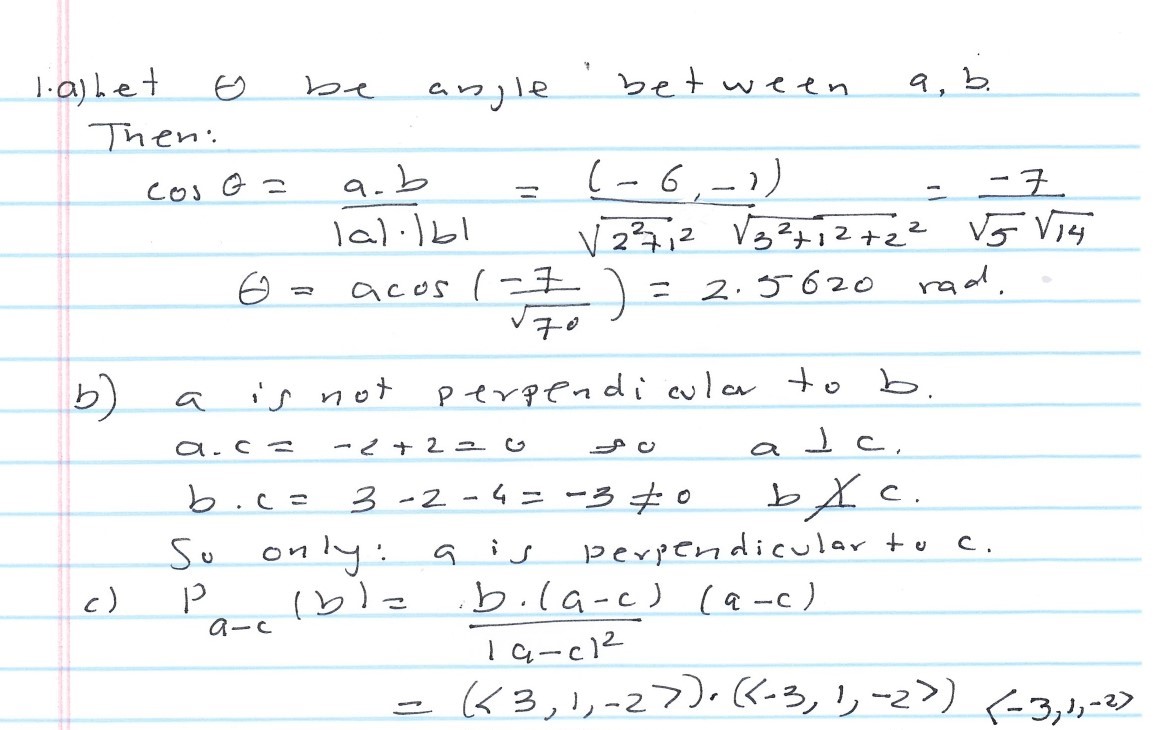 1.a) Let θ be angle between a, b.
Then:
cos θ = a.b / |a|.|b| = (-6,-1) / √2²+1² √3²+1²+2² = -7 / √5 √14
θ = acos (-7 / √70) = 2.5620 rad.
b) a is not perpendicular to b.
a.c = -2+2=0 so a ⊥ c.
b.c = 3-2-4=-3≠0 b ⊥̸ c.
So only: a is perpendicular to c.
c) P a-c (b) = b.(a-c) / |a-c|² (a-c)
= (<3,1,-2>).(<-3,1,-2>) <-3,1,-2>